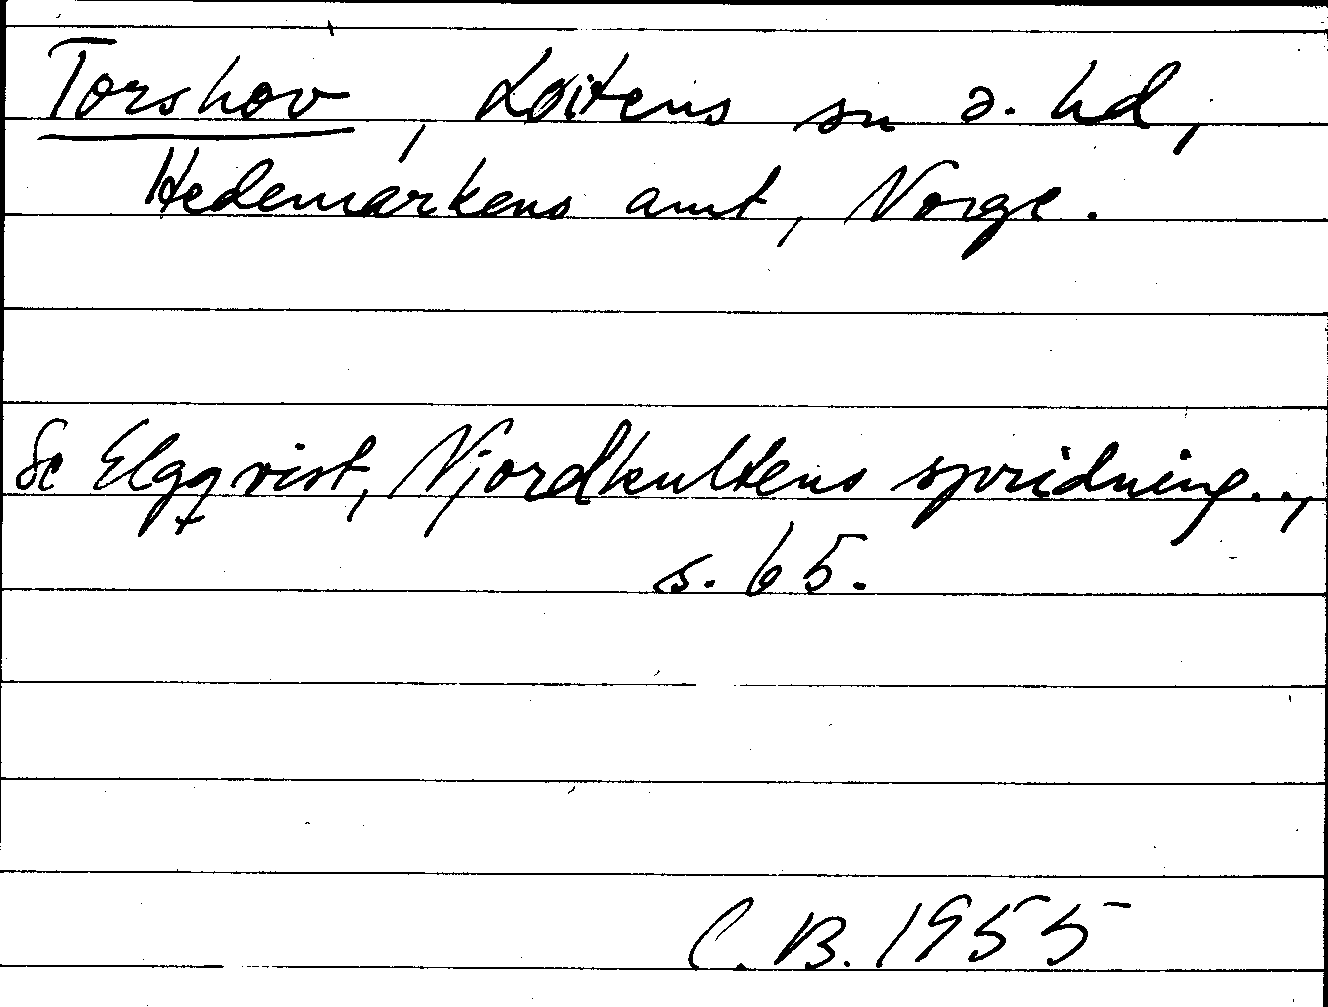 Torshov, Løitens sn o. hd,
Hedemarkens amt, Norge.
Se Elgqvist, Njordkultens spridning..,
s. 65.
C. B. 1955